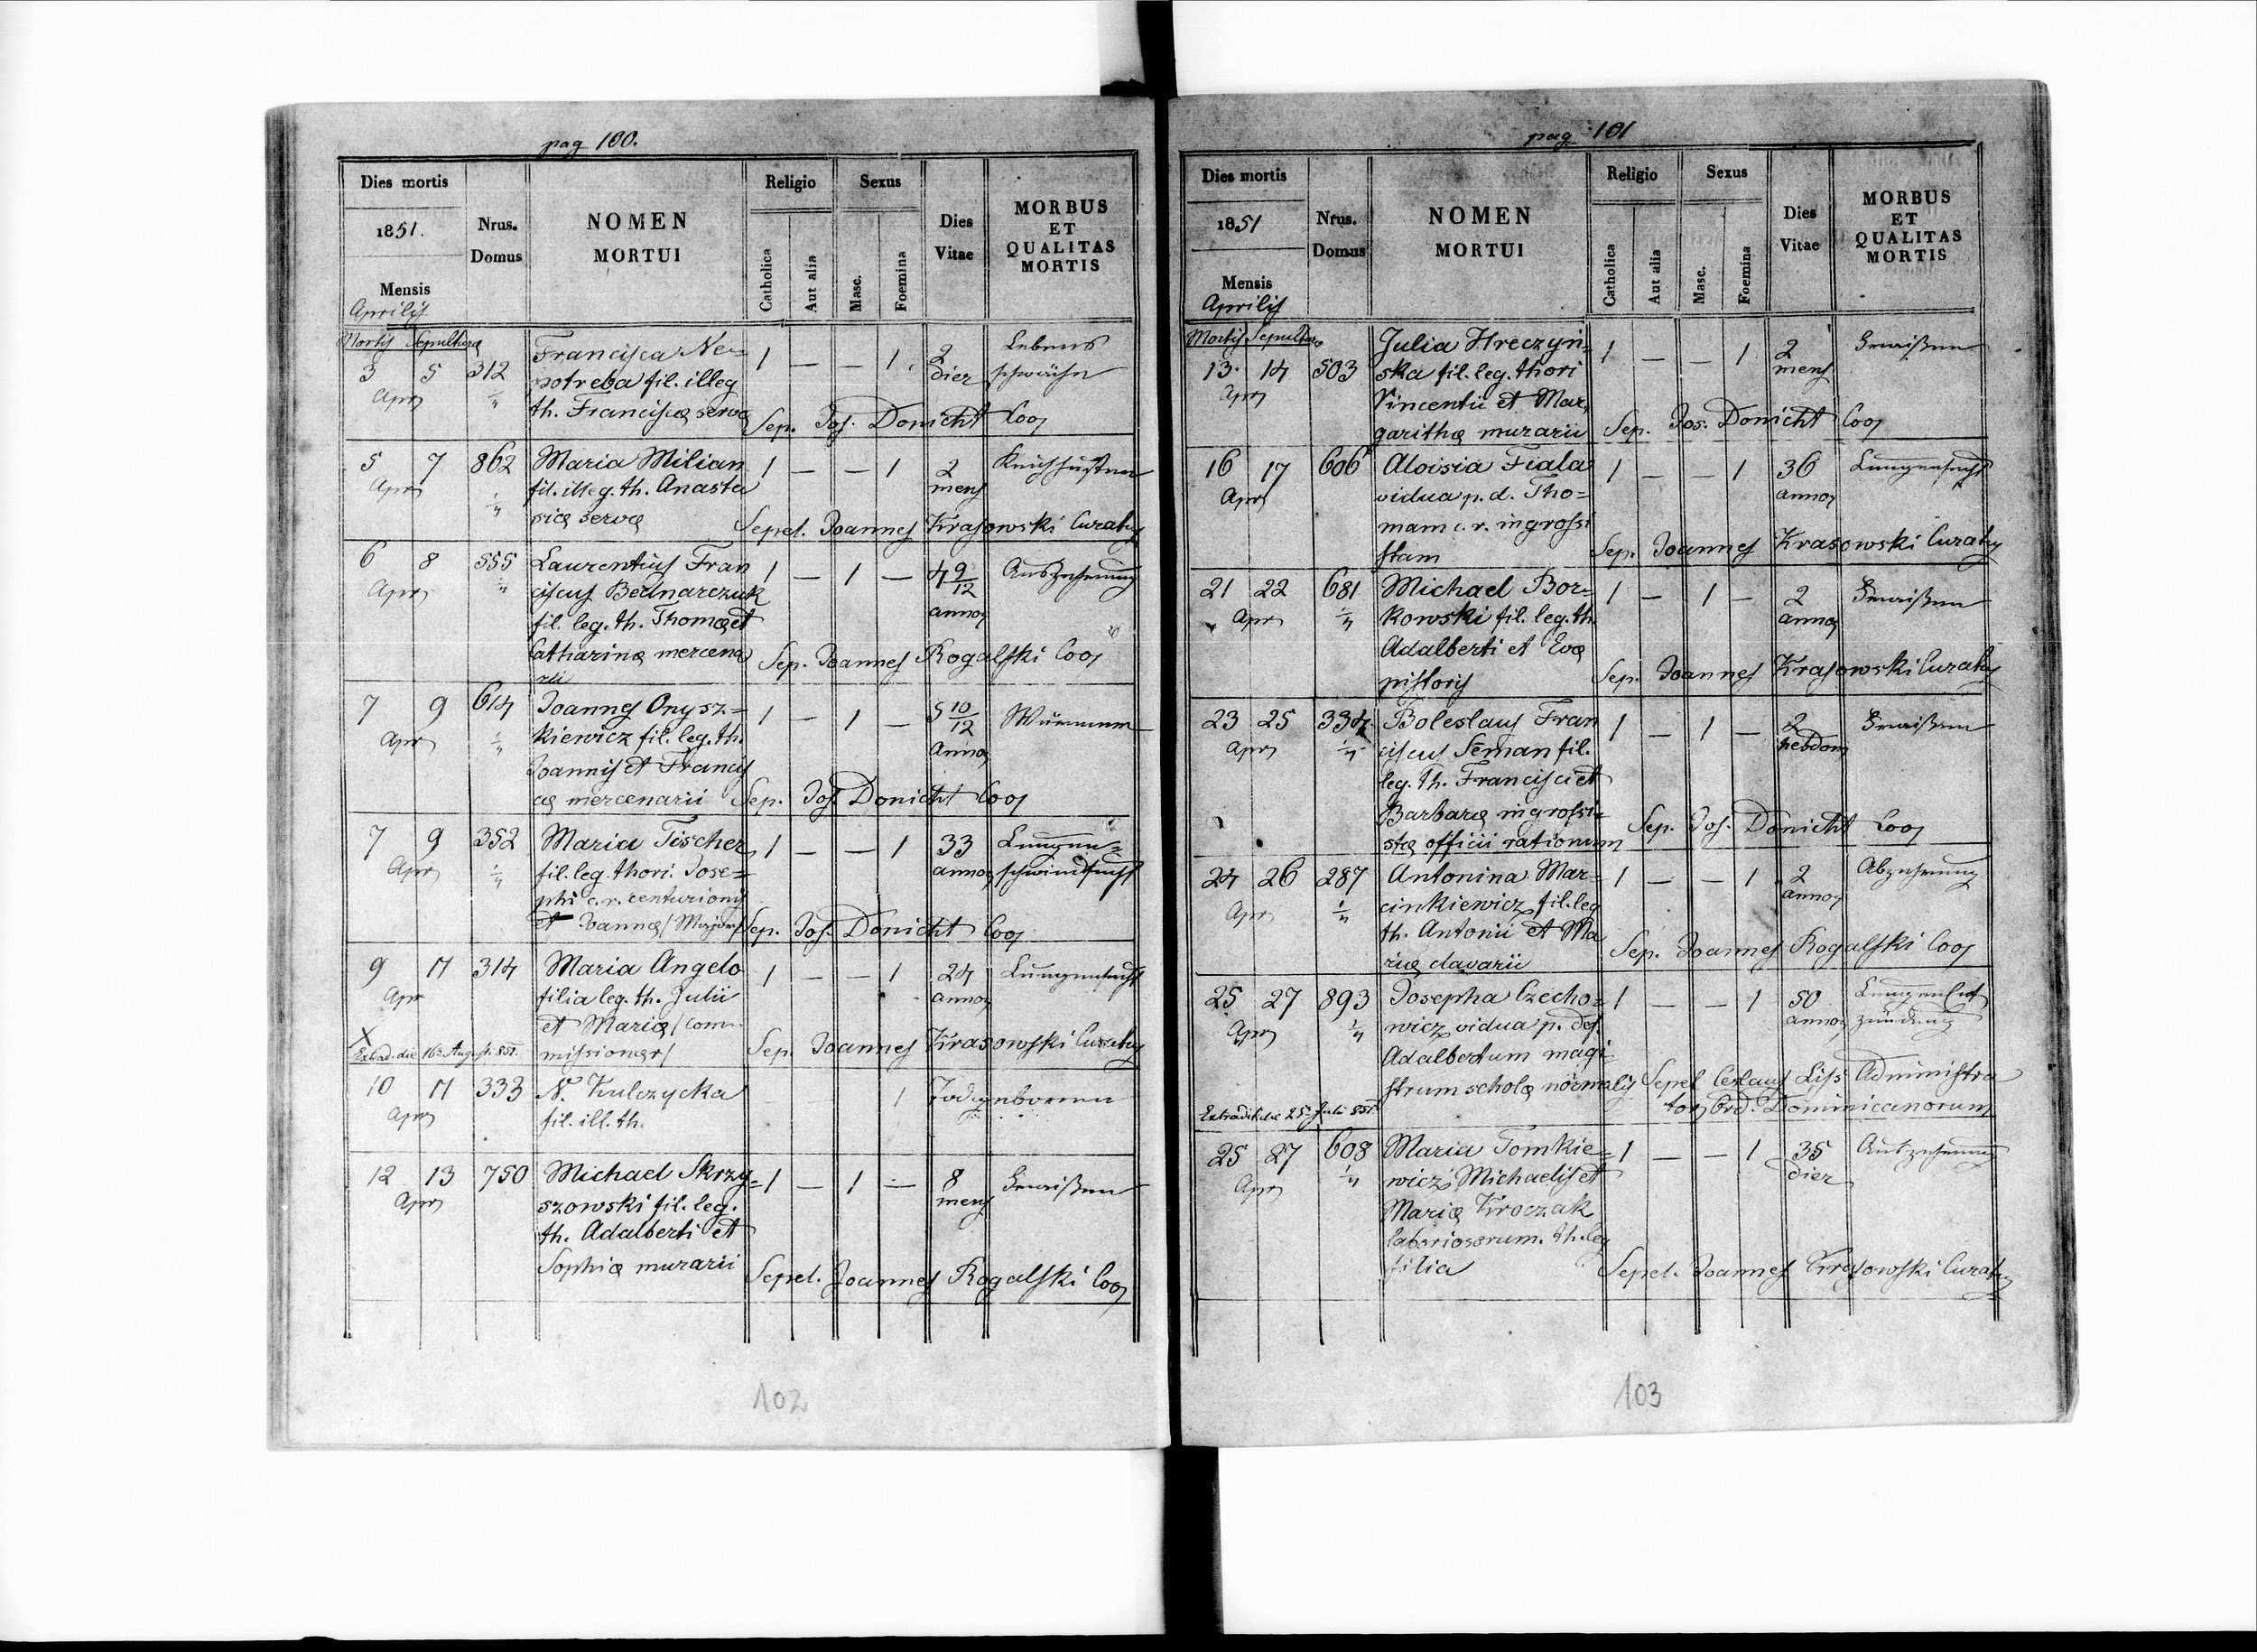 pag 100.
Dies mortis
1851.
Mensis
Aprilis
Nrus.
Domus
NOMEN
MORTUI
Religio
Catholica
Aut alia
Sexus
Masc.
Foemina
Dies
Vitae
MORBUS
ET
QUALITAS
MORTIS
Mortis Sepulturæ
3 5 312 Francisca Ne=
potreba fil. illeg
th. Francisca serva
Apr
1 — — 1
2
dier
Lebens
schwäche
Sep. Jos. Donicht Coop
5 7 862 Maria Milian
fil. illeg. th. Anasta
siæ servæ
Apr
1 — — 1
2
mens
Keichhusten
Sepel. Joannes Krasowski Curatus
6 8 555 Laurentius Fran
ciscus Bednarczuk
fil. leg. th. Thomæ et
Catharinæ mercena
rii
Apr
1 — 1 —
4 9/12
annor
Auszehrung
Sep. Joannes Rogalski Coop
7 9 614 Joannes Onysz=
kiewicz fil. leg. th.
Joannis et Francis
cæ mercenarii
Apr
1 — 1 —
5 10/12
Annor
Würmmer
Sep. Jos. Donicht Coop
7 9 352 Maria Tischer
fil. leg. thori. Jose=
phi c. r. centurionis
et Joannæ /Major/
Apr
1 — — 1
33
annor
Lungen=
schwindsucht
Sep. Jos. Donicht Coop
9 11 314 Maria Angelo
filia leg. th. Julii
et Mariæ / com
missioner/
Apr
X
Extrad. die 16 August 851.
1 — — 1
24
annor
Lungensucht
Sep. Joannes Krasowski Curatus
10 11 333 N. Kulczycka
fil. ill. th.
Apr
1
Todtgeboren
12 13 750 Michael Skrzy=
szowski fil. leg.
th. Adalberti et
Sophiæ murarii
Apr
1 — 1 —
8
mens
Fraißen
Sepel. Joannes Rogalski Coop
102
pag 101
Dies mortis
1851
Mensis
Aprilis
Nrus.
Domus
NOMEN
MORTUI
Religio
Catholica
Aut alia
Sexus
Masc.
Foemina
Dies
Vitae
MORBUS
ET
QUALITAS
MORTIS
Mortis Sepulturæ
13 14 503 Julia Hreczyń=
ska fil. leg. thori
Vincentii et Mar,
garithæ murarii
Apr
1 — — 1
2
mens
Fraißen
Sep. Jos. Donicht Coop
16 17 606 Aloisia Fiala
vidua p. d. Tho=
mam c. r. ingrossi
stam
Apr
1 — — 1
36
annor
Lungensucht
Sep. Joannes Krasowski Curatus
21 22 681 Michael Bor=
kowski fil. leg. th.
Adalberti et Evæ
pistoris
Apr
1 — 1 —
2
annor
Fraißen
Sep. Joannes Krasowski Curatus
23 25 334 Boleslaus Fran
ciscus Seman fil.
leg. th. Francisci et
Barbaræ ingrossi=
stæ officii rationum
Apr
1 — 1 —
2
hebdom
Fraißen
Sep. Jos. Donicht Coop
24 26 287 Antonina Mar=
cinkiewicz fil. leg
th. Antonii et Ma
riæ clavarii
Apr
1 — — 1
2
annor
Abzehrung
Sep. Joannes Rogalski Coop
25 27 893 Josepha Czecho=
wicz vidua p. def.
Adalbertum magi
strum scholæ normalis
Apr
Extradit die 25 Juli 851
1 — — 1
50
annor
Lungenent
zündung
Sepel Ceslaus Liss Administra
tor Ord. Dominicanorum
25 27 608 Maria Tomkie=
wicz Michaelis et
Mariæ Kroczak
laboriosorum. th. leg
filia
Apr
1 — — 1
35
dier
Auszehrung
Sepel. Joannes Krasowski Curatus
103